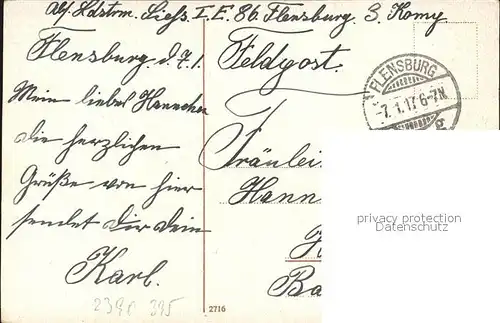 Abs. Ldstrm. Liess. I. E. 86. Flensburg. 3. Komp
Flensburg. d. 7.1.
Mein liebes Hannchen
die herzlichen
Grüße von hier
sendet Dir Dein
Karl.
Feldpost.
FLENSBURG
-7.1.17.6-7N.
Fräulei
Hann
Ba
privacy protection
Datenschutz
2398 395
2716